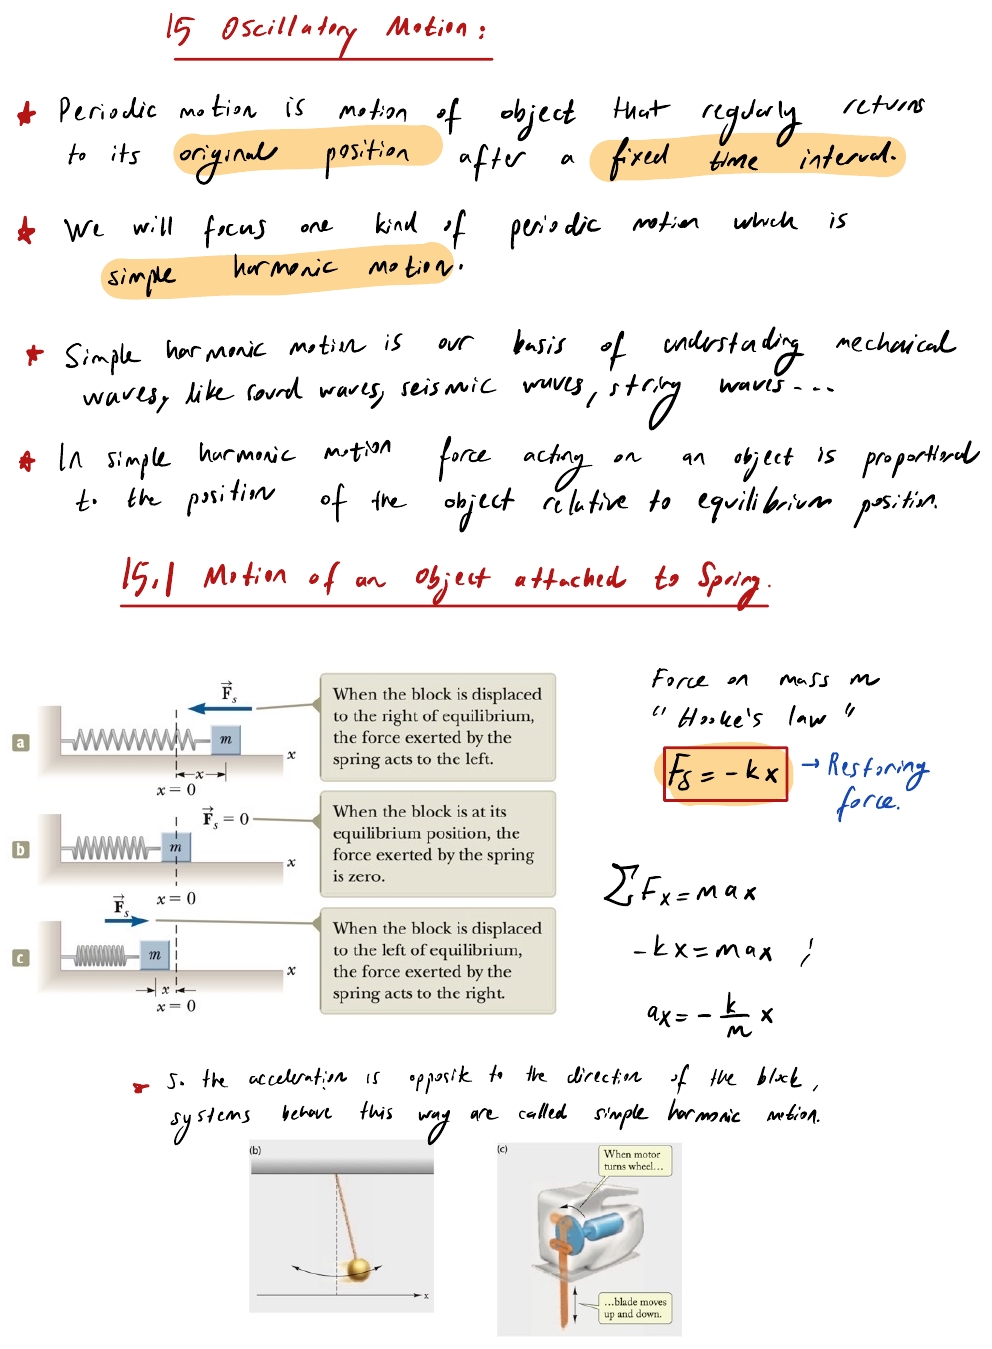 15 Oscillatory Motion:
★ Periodic motion is motion of object that regularly returns
to its original position after a fixed time interval.
★ We will focus one kind of periodic motion which is
simple harmonic motion.
★ Simple harmonic motion is our basis of understading mechanical
waves, like sound waves, seismic waves, string waves ---
★ In simple harmonic motion force acting on an object is proportional
to the position of the object relative to equilibrium position.
15.1 Motion of an Object attached to Spring.
a
F⃗s
m
x
x
x = 0
When the block is displaced
to the right of equilibrium,
the force exerted by the
spring acts to the left.
b
F⃗s = 0
m
x
x = 0
When the block is at its
equilibrium position, the
force exerted by the spring
is zero.
c
F⃗s
m
x
x
x = 0
When the block is displaced
to the left of equilibrium,
the force exerted by the
spring acts to the right.
Force on mass m
"Hooke's law"
Fs = -kx → Restoring
force.
∑Fx = max
-kx = max ;
ax = - k/m x
So the acceleration is opposite to the direction of the block,
systems behave this way are called simple harmonic motion.
(b)
x
(c)
When motor
turns wheel...
...blade moves
up and down.